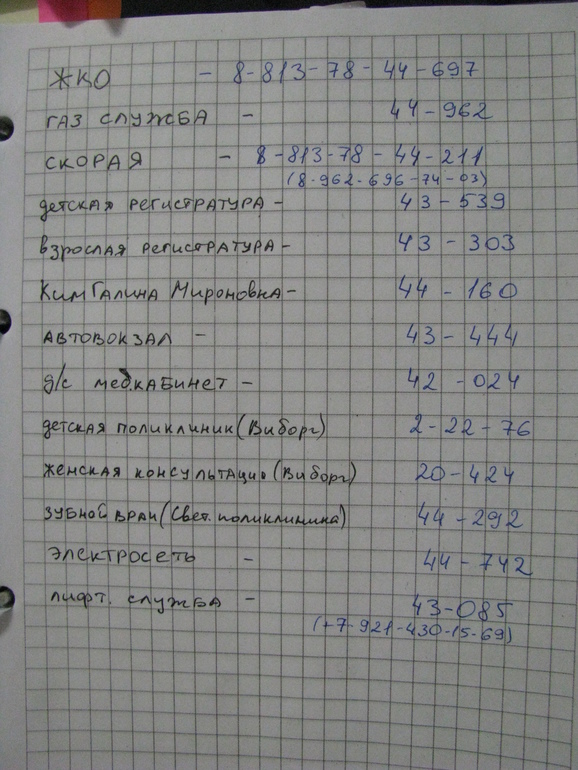 ЖКО - 8-813-78-44-697
ГАЗ СЛУЖБА - 44-962
СКОРАЯ - 8-813-78-44-211
(8-962-696-74-03)
детская РЕГИСТРАТУРА - 43-539
взрослая РЕГИСТРАТУРА - 43-303
Ким ГАЛИНА МИРОНОВНА - 44-160
АВТОВОКЗАЛ - 43-444
д/с мед.КАБИНЕТ - 42-024
детская ПОЛИКЛИНИК (Виборг) 2-22-76
ЖЕНСКАЯ КОНСУЛЬТАЦИЮ (Виборг) 20-424
ЗУБНОЙ ВРАЧ (Свет. поликлиника) 44-292
ЭЛЕКТРОСЕТЬ - 44-742
лифт. СЛУЖБА - 43-085
(+7-921-430-15-69)